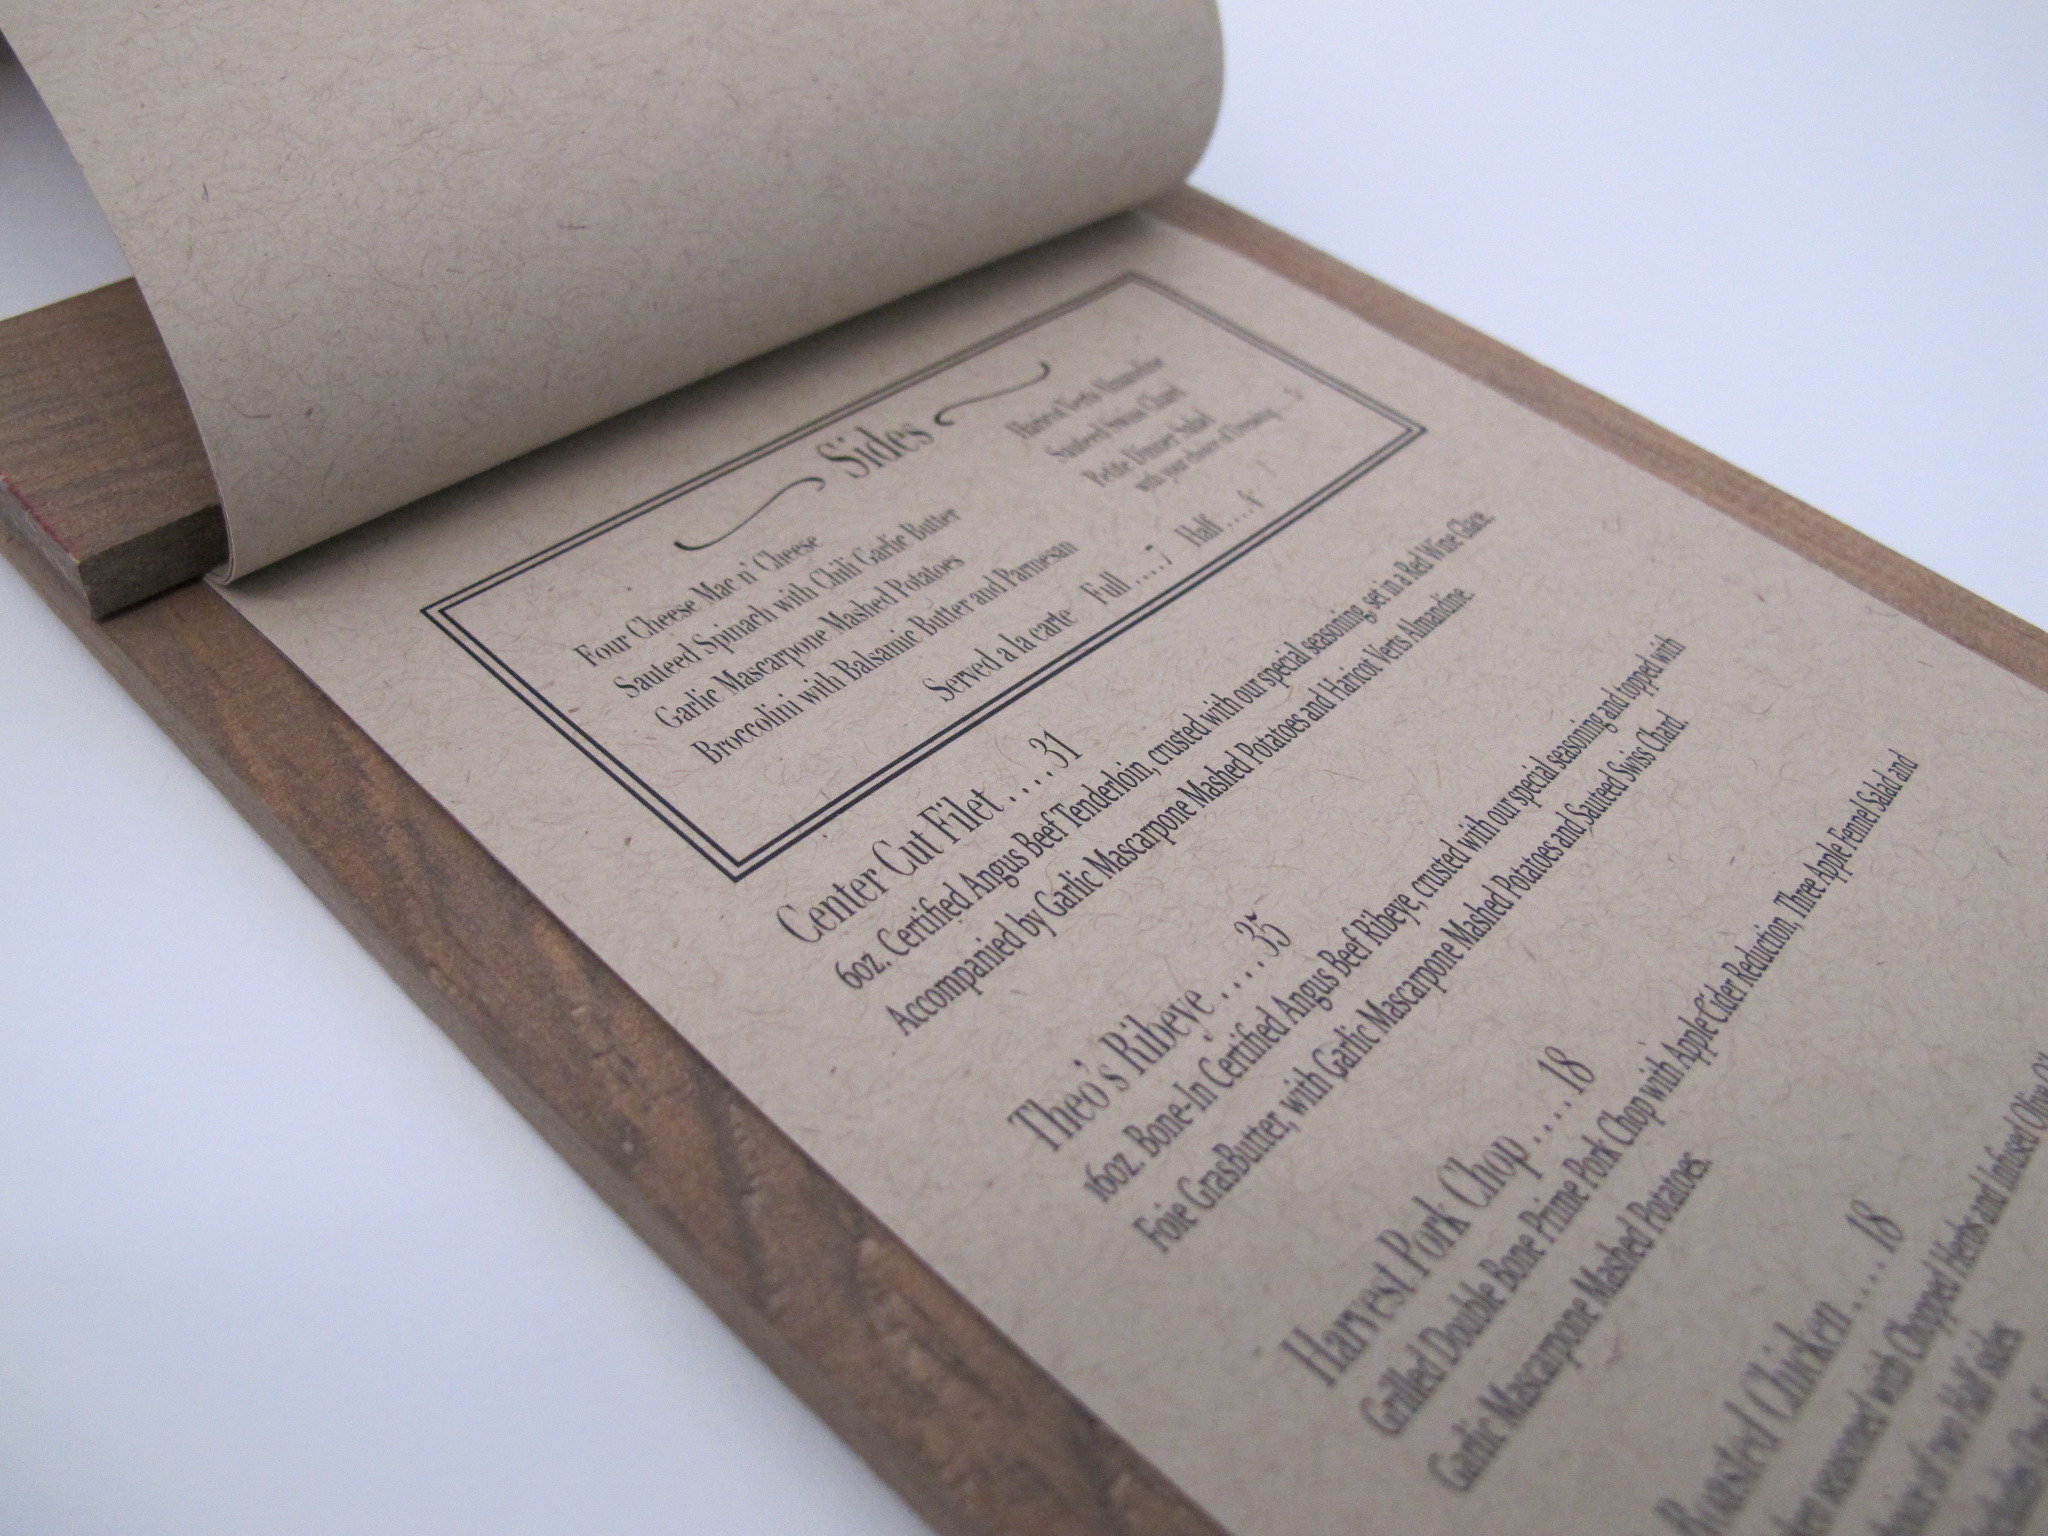 Sides
Four Cheese Mac n' Cheese
Sauteed Spinach with Chili Garlic Butter
Garlic Mascarpone Mashed Potatoes
Broccolini with Balsamic Butter and Parmesan
Haricot Verts Almandine
Sauteed Swiss Chard
Petite Dinner Salad
with your choice of Dressing ... 5
Served a la carte Full ....7 Half ....4
Center Cut Filet ....31
6oz. Certified Angus Beef Tenderloin, crusted with our special seasoning, set in a Red Wine Glace.
Accompanied by Garlic Mascarpone Mashed Potatoes and Haricot Verts Almandine.
Theo's Ribeye ....35
16oz. Bone-In Certified Angus Beef Ribeye, crusted with our special seasoning and topped with
Foie GrasButter, with Garlic Mascarpone Mashed Potatoes and Sauteed Swiss Chard.
Harvest Pork Chop ....18
Grilled Double Bone Prime Pork Chop with Apple Cider Reduction, Three Apple Fennel Salad and
Garlic Mascarpone Mashed Potatoes.
Roasted Chicken ....18
seasoned with Chopped Herbs and Infused Olive
of two Half sides